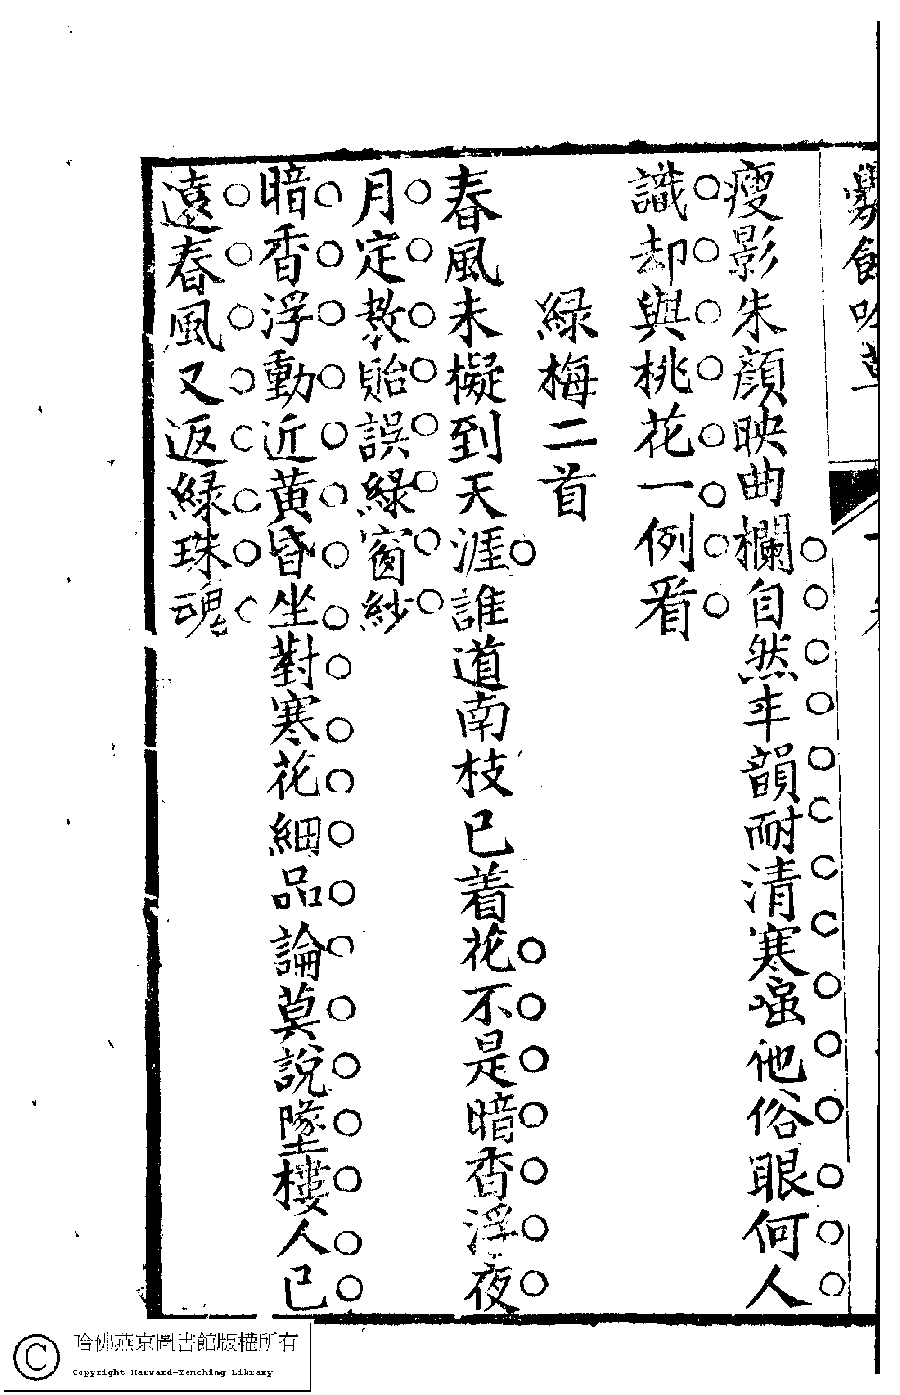 瘦影朱顏映曲欄自然丰韻耐清寒嗤他俗眼何人
識却與桃花一例看
綠梅二首
春風未擬到天涯誰道南枝已着花不是暗香浮夜
月定教貽誤綠窗紗
暗香浮動近黃昏坐對寒花細品論莫說墜樓人已
遠春風又返綠珠魂
哈佛燕京圖書館版權所有
Copyright Harvard-Yenching Library